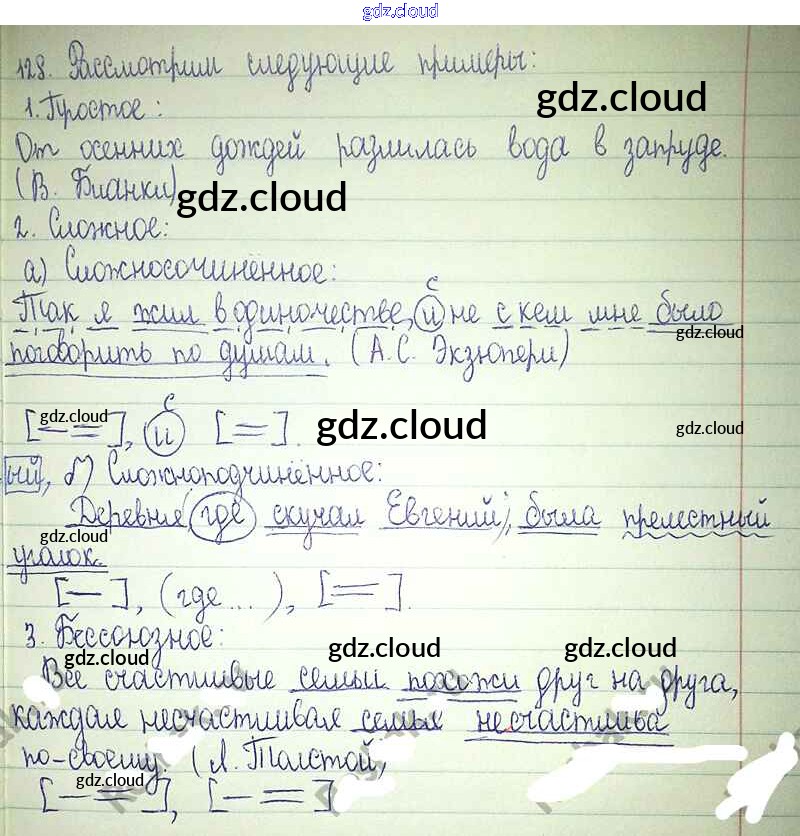 gdz.cloud
128. Рассмотрим следующие примеры:
gdz.cloud
1. Простое:
От осенних дождей разлилась вода в запруде.
(В. Бианки)
gdz.cloud
2. Сложное:
а) Сложносочинённое:
с
Так я жил в одиночестве, и не с кем мне было
gdz.cloud
поговорить по душам. (А.С. Экзюпери)
gdz.cloud
с
gdz.cloud
gdz.cloud
[— =], и [=].
ый, б) Сложноподчинённое:
Деревня, где скучал Евгений, была прелестный
gdz.cloud
уголок.
[—], (где...), [=].
3. Бессоюзное:
gdz.cloud
gdz.cloud
gdz.cloud
Все счастливые семьи похожи друг на друга,
каждая несчастливая семья несчастлива
по-своему. (Л. Толстой,
gdz.cloud
[— =], [— =]